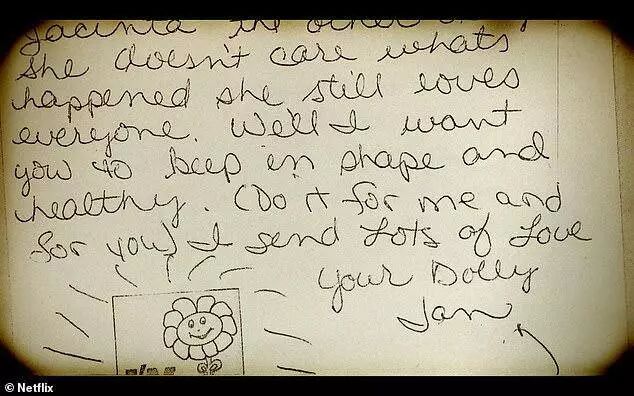 Jacinta the other day
She doesn't care whats
happened she still loves
everyone. Well I want
you to keep in shape and
healthy. (Do it for me and
for you) I send Lots of Love
Your Dolly
Jan
© Netflix